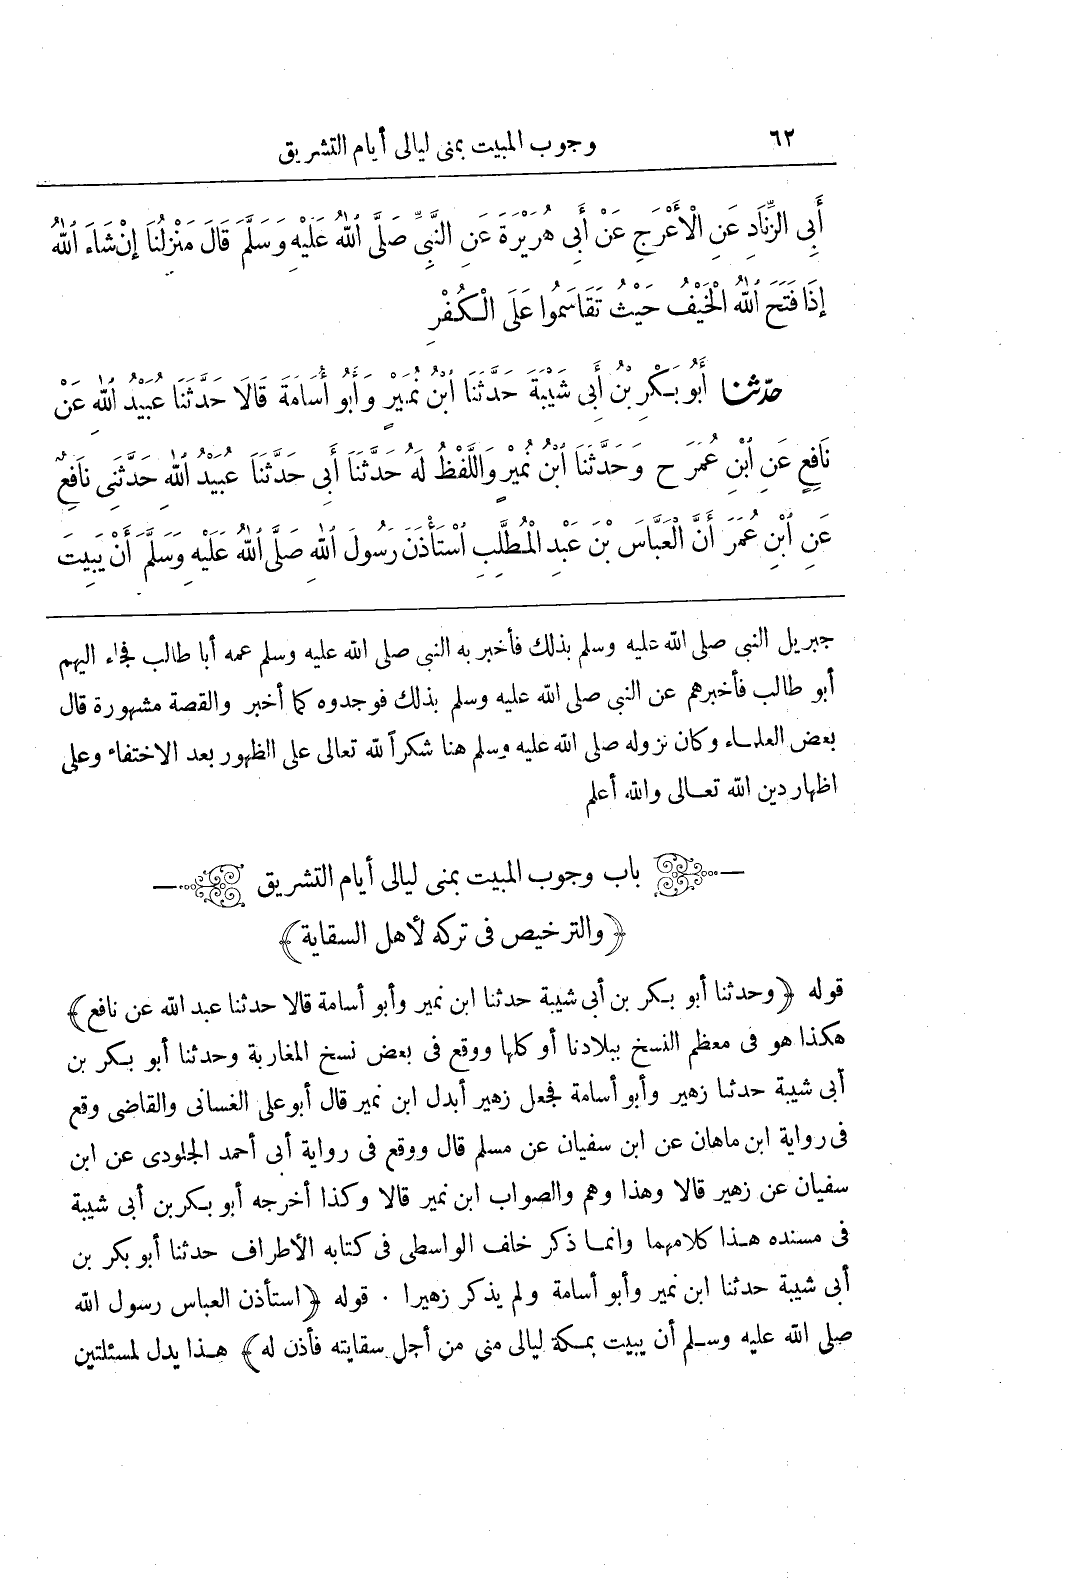 ٦٢
وجوب المبيت بمنى ليالى أيام التشريق
أَبِى الزِّنَادِ عَنِ الْأَعْرَجِ عَنْ أَبِى هُرَيْرَةَ عَنِ النَّبِىِّ صَلَّى اللهُ عَلَيْهِ وَسَلَّمَ قَالَ مَنْزِلُنَا إِنْ شَاءَ اللهُ
إِذَا فَتَحَ اللهُ الْخَيْفُ حَيْثُ تَقَاسَمُوا عَلَى الْكُفْرِ
حَدَّثَنَا أَبُو بَكْرِ بْنُ أَبِى شَيْبَةَ حَدَّثَنَا ابْنُ نُمَيْرٍ وَأَبُو أُسَامَةَ قَالَا حَدَّثَنَا عُبَيْدُ اللهِ عَنْ
نَافِعٍ عَنِ ابْنِ عُمَرَ ح وَحَدَّثَنَا ابْنُ نُمَيْرٍ وَاللَّفْظُ لَهُ حَدَّثَنَا أَبِى حَدَّثَنَا عُبَيْدُ اللهِ حَدَّثَنِى نَافِعٌ
عَنِ ابْنِ عُمَرَ أَنَّ الْعَبَّاسَ بْنَ عَبْدِ الْمُطَّلِبِ اسْتَأْذَنَ رَسُولَ اللهِ صَلَّى اللهُ عَلَيْهِ وَسَلَّمَ أَنْ يَبِيتَ
جبريل النبى صلى الله عليه وسلم بذلك فأخبر به النبى صلى الله عليه وسلم عمه أبا طالب فجاء اليهم
أبو طالب فأخبرهم عن النبى صلى الله عليه وسلم بذلك فوجدوه كما أخبر والقصة مشهورة قال
بعض العلماء وكان نزوله صلى الله عليه وسلم هنا شكراً لله تعالى على الظهور بعد الاختفاء وعلى
اظهار دين الله تعالى والله أعلم
باب وجوب المبيت بمنى ليالى أيام التشريق
﴿والترخيص فى تركه لأهل السقاية﴾
قوله ﴿وحدثنا أبو بكر بن أبى شيبة حدثنا ابن نمير وأبو أسامة قالا حدثنا عبد الله عن نافع﴾
هكذا هو فى معظم النسخ ببلادنا أو كلها ووقع فى بعض نسخ المغاربة وحدثنا أبو بكر بن
أبى شيبة حدثنا زهير وأبو أسامة فجعل زهير أبدل ابن نمير قال أبو على الغسانى والقاضى وقع
فى رواية ابن ماهان عن ابن سفيان عن مسلم قال ووقع فى رواية أبى أحمد الجلودى عن ابن
سفيان عن زهير قالا وهذا وهم والصواب ابن نمير قالا وكذا أخرجه أبو بكر بن أبى شيبة
فى مسنده هذا كلامهما وانما ذكر خلف الواسطى فى كتابه الأطراف حدثنا أبو بكر بن
أبى شيبة حدثنا ابن نمير وأبو أسامة ولم يذكر زهيرا . قوله ﴿استأذن العباس رسول الله
صلى الله عليه وسلم أن يبيت بمكة ليالى منى من أجل سقايته فأذن له﴾ هذا يدل لمسئلتين